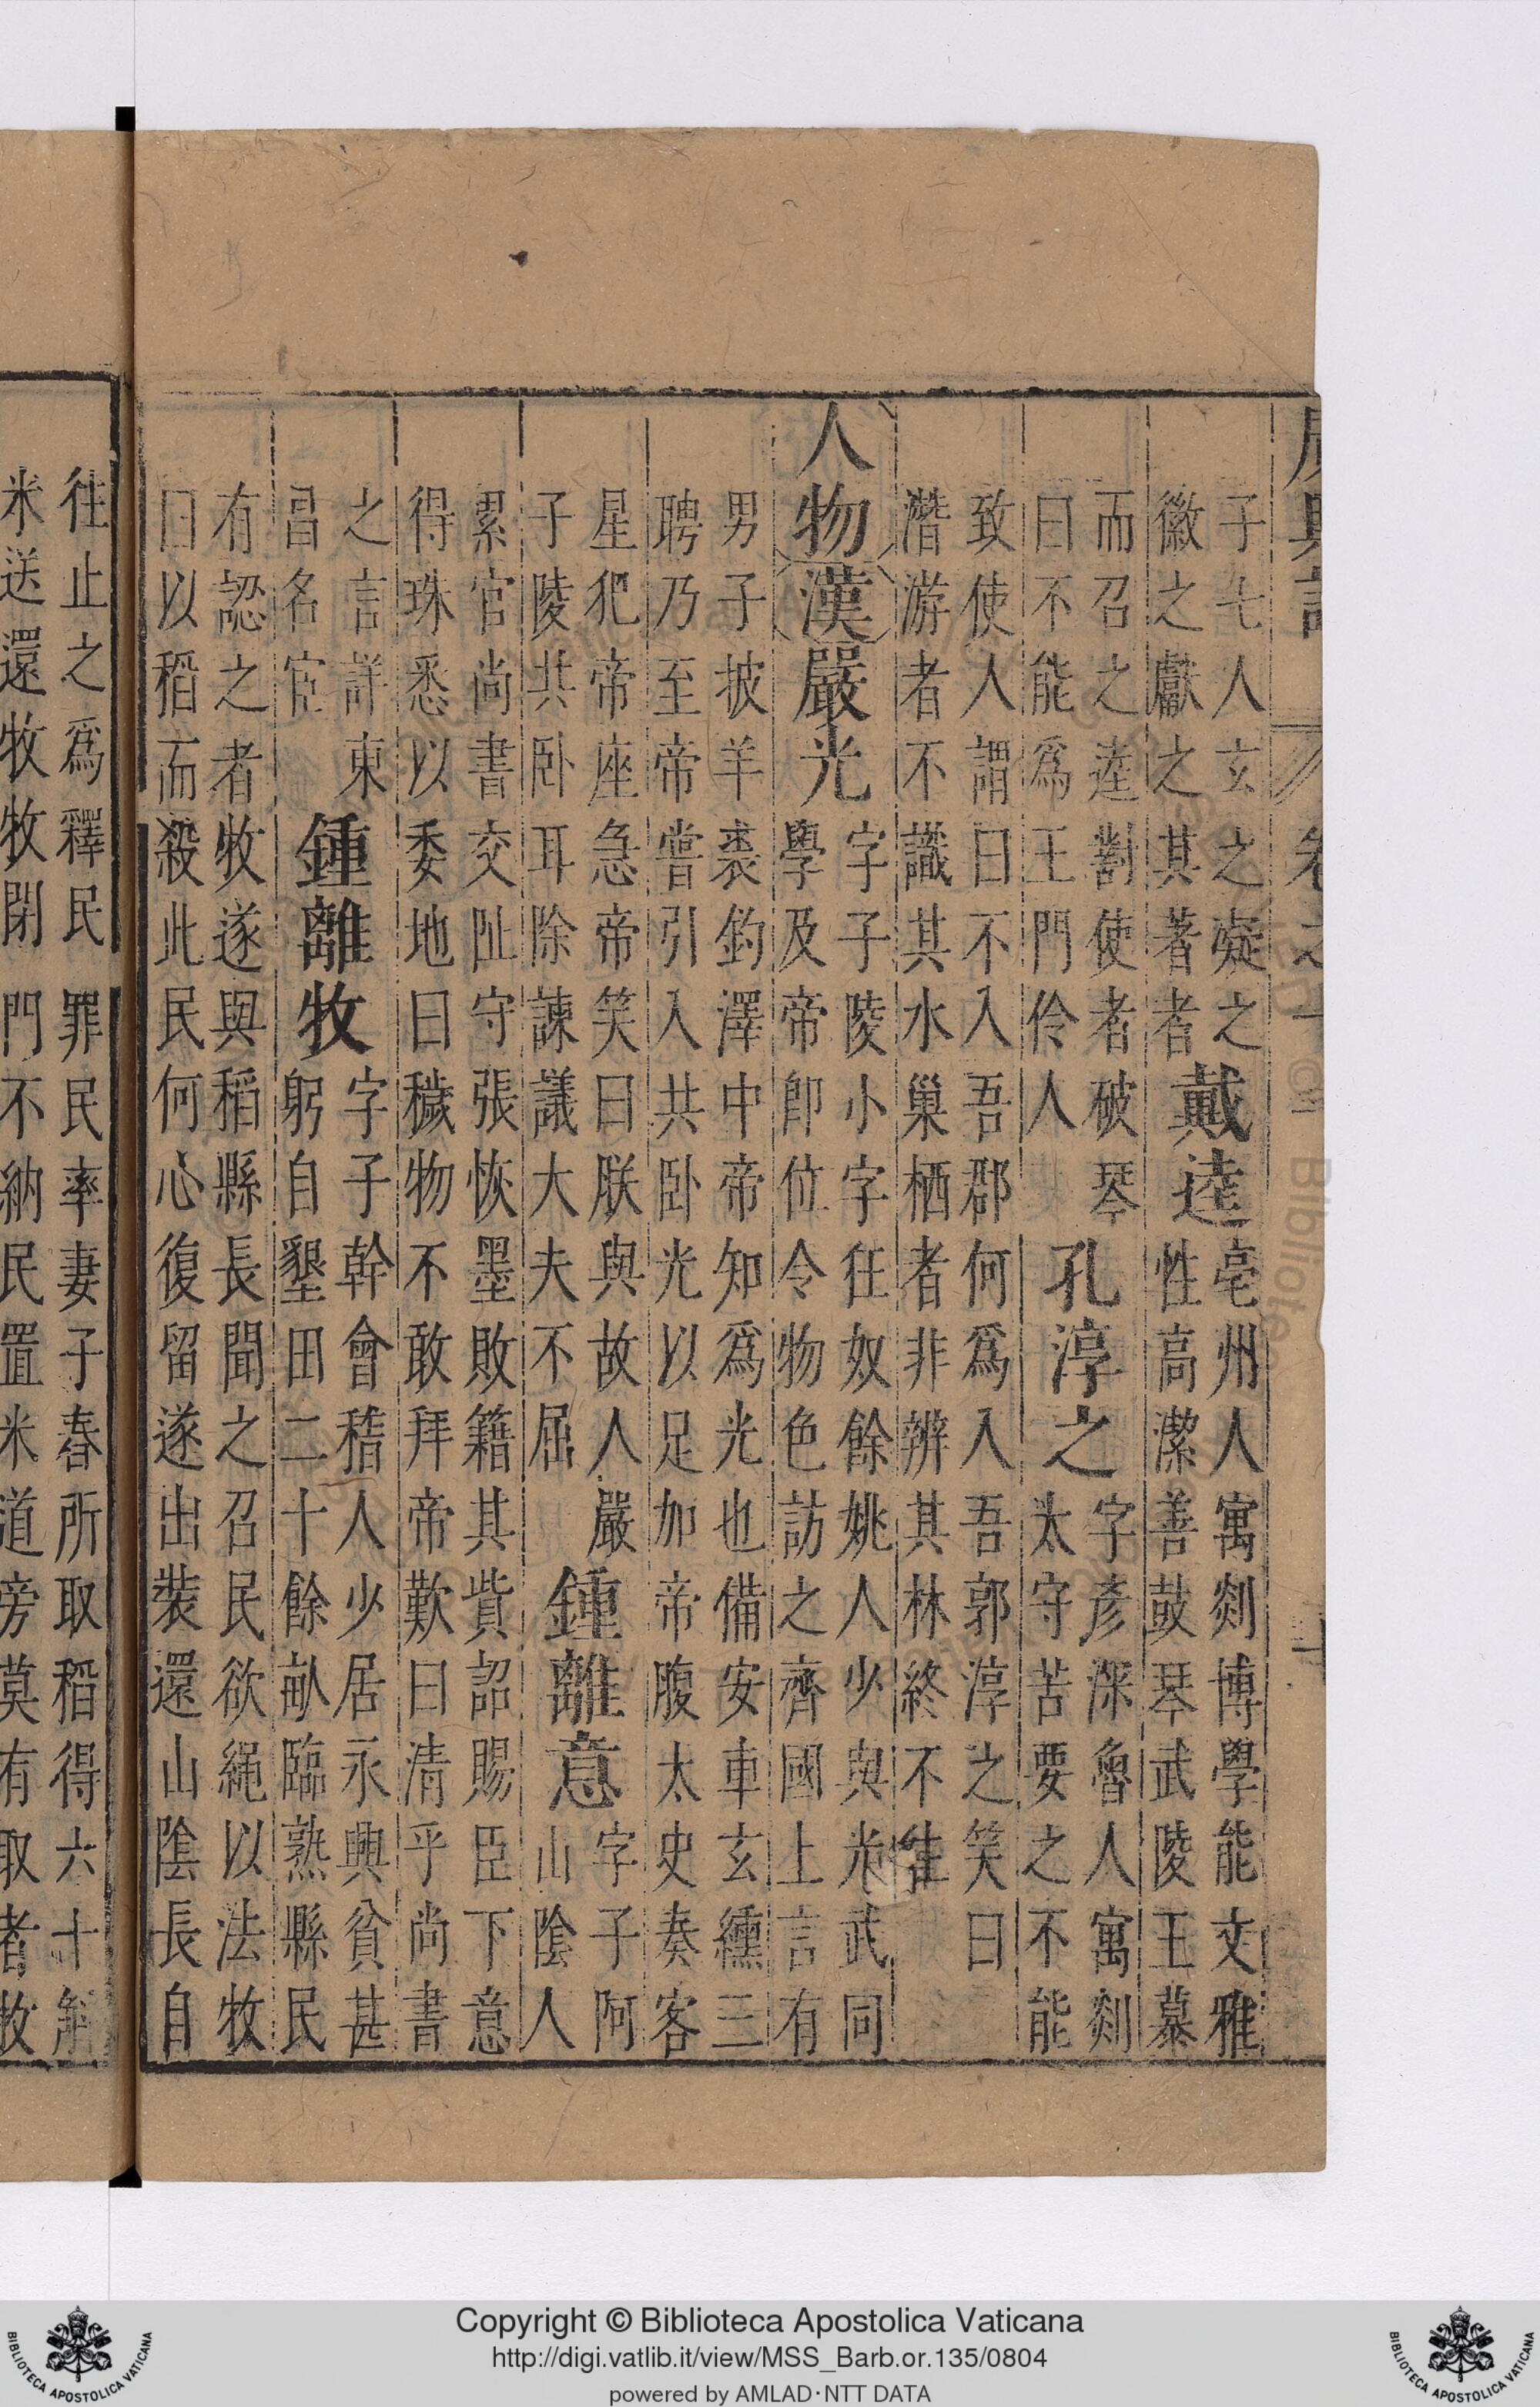 廣輿記 卷之十一
子七人玄之凝之
徽之獻之其著者者
戴逵
亳州人寓剡博學能文雅
性高潔善鼓琴武陵王慕
而召之逵對使者破琴
曰不能爲王門伶人
孔淳之
字彥深魯人寓剡
太守苦要之不能
致使人謂曰不入吾郡何爲入吾郭淳之笑曰
潛游者不識其水巢栖者非辨其林終不往
人物
漢
嚴光
字子陵小字狂奴餘姚人少與光武同
學及帝卽位令物色訪之齊國上言有
男子披羊裘釣澤中帝知爲光也備安車玄纁三
聘乃至帝嘗引入共卧光以足加帝腹太史奏客
星犯帝座急帝笑曰朕與故人嚴
子陵共卧耳除諫議大夫不屈
鍾離意
字子阿
山陰人
累官尚書交阯守張恢墨敗籍其貲詔賜臣下意
得珠悉以委地曰穢物不敢拜帝歎曰清乎尚書
之言詳東
昌名宦
鍾離牧
字子幹會稽人少居永興貧甚
躬自墾田二十餘畝臨熟縣民
有認之者牧遂與稻縣長聞之召民欲繩以法牧
曰以稻而殺此民何心復留遂出裝還山陰長自
往止之爲釋民罪民率妻子舂所取稻得六十斛
米送還牧牧閉門不納民置米道旁莫有取者牧
Copyright © Biblioteca Apostolica Vaticana
http://digi.vatlib.it/view/MSS_Barb.or.135/0804
powered by AMLAD·NTT DATA
BIBLIOTECA APOSTOLICA VATICANA
BIBLIOTECA APOSTOLICA VATICANA